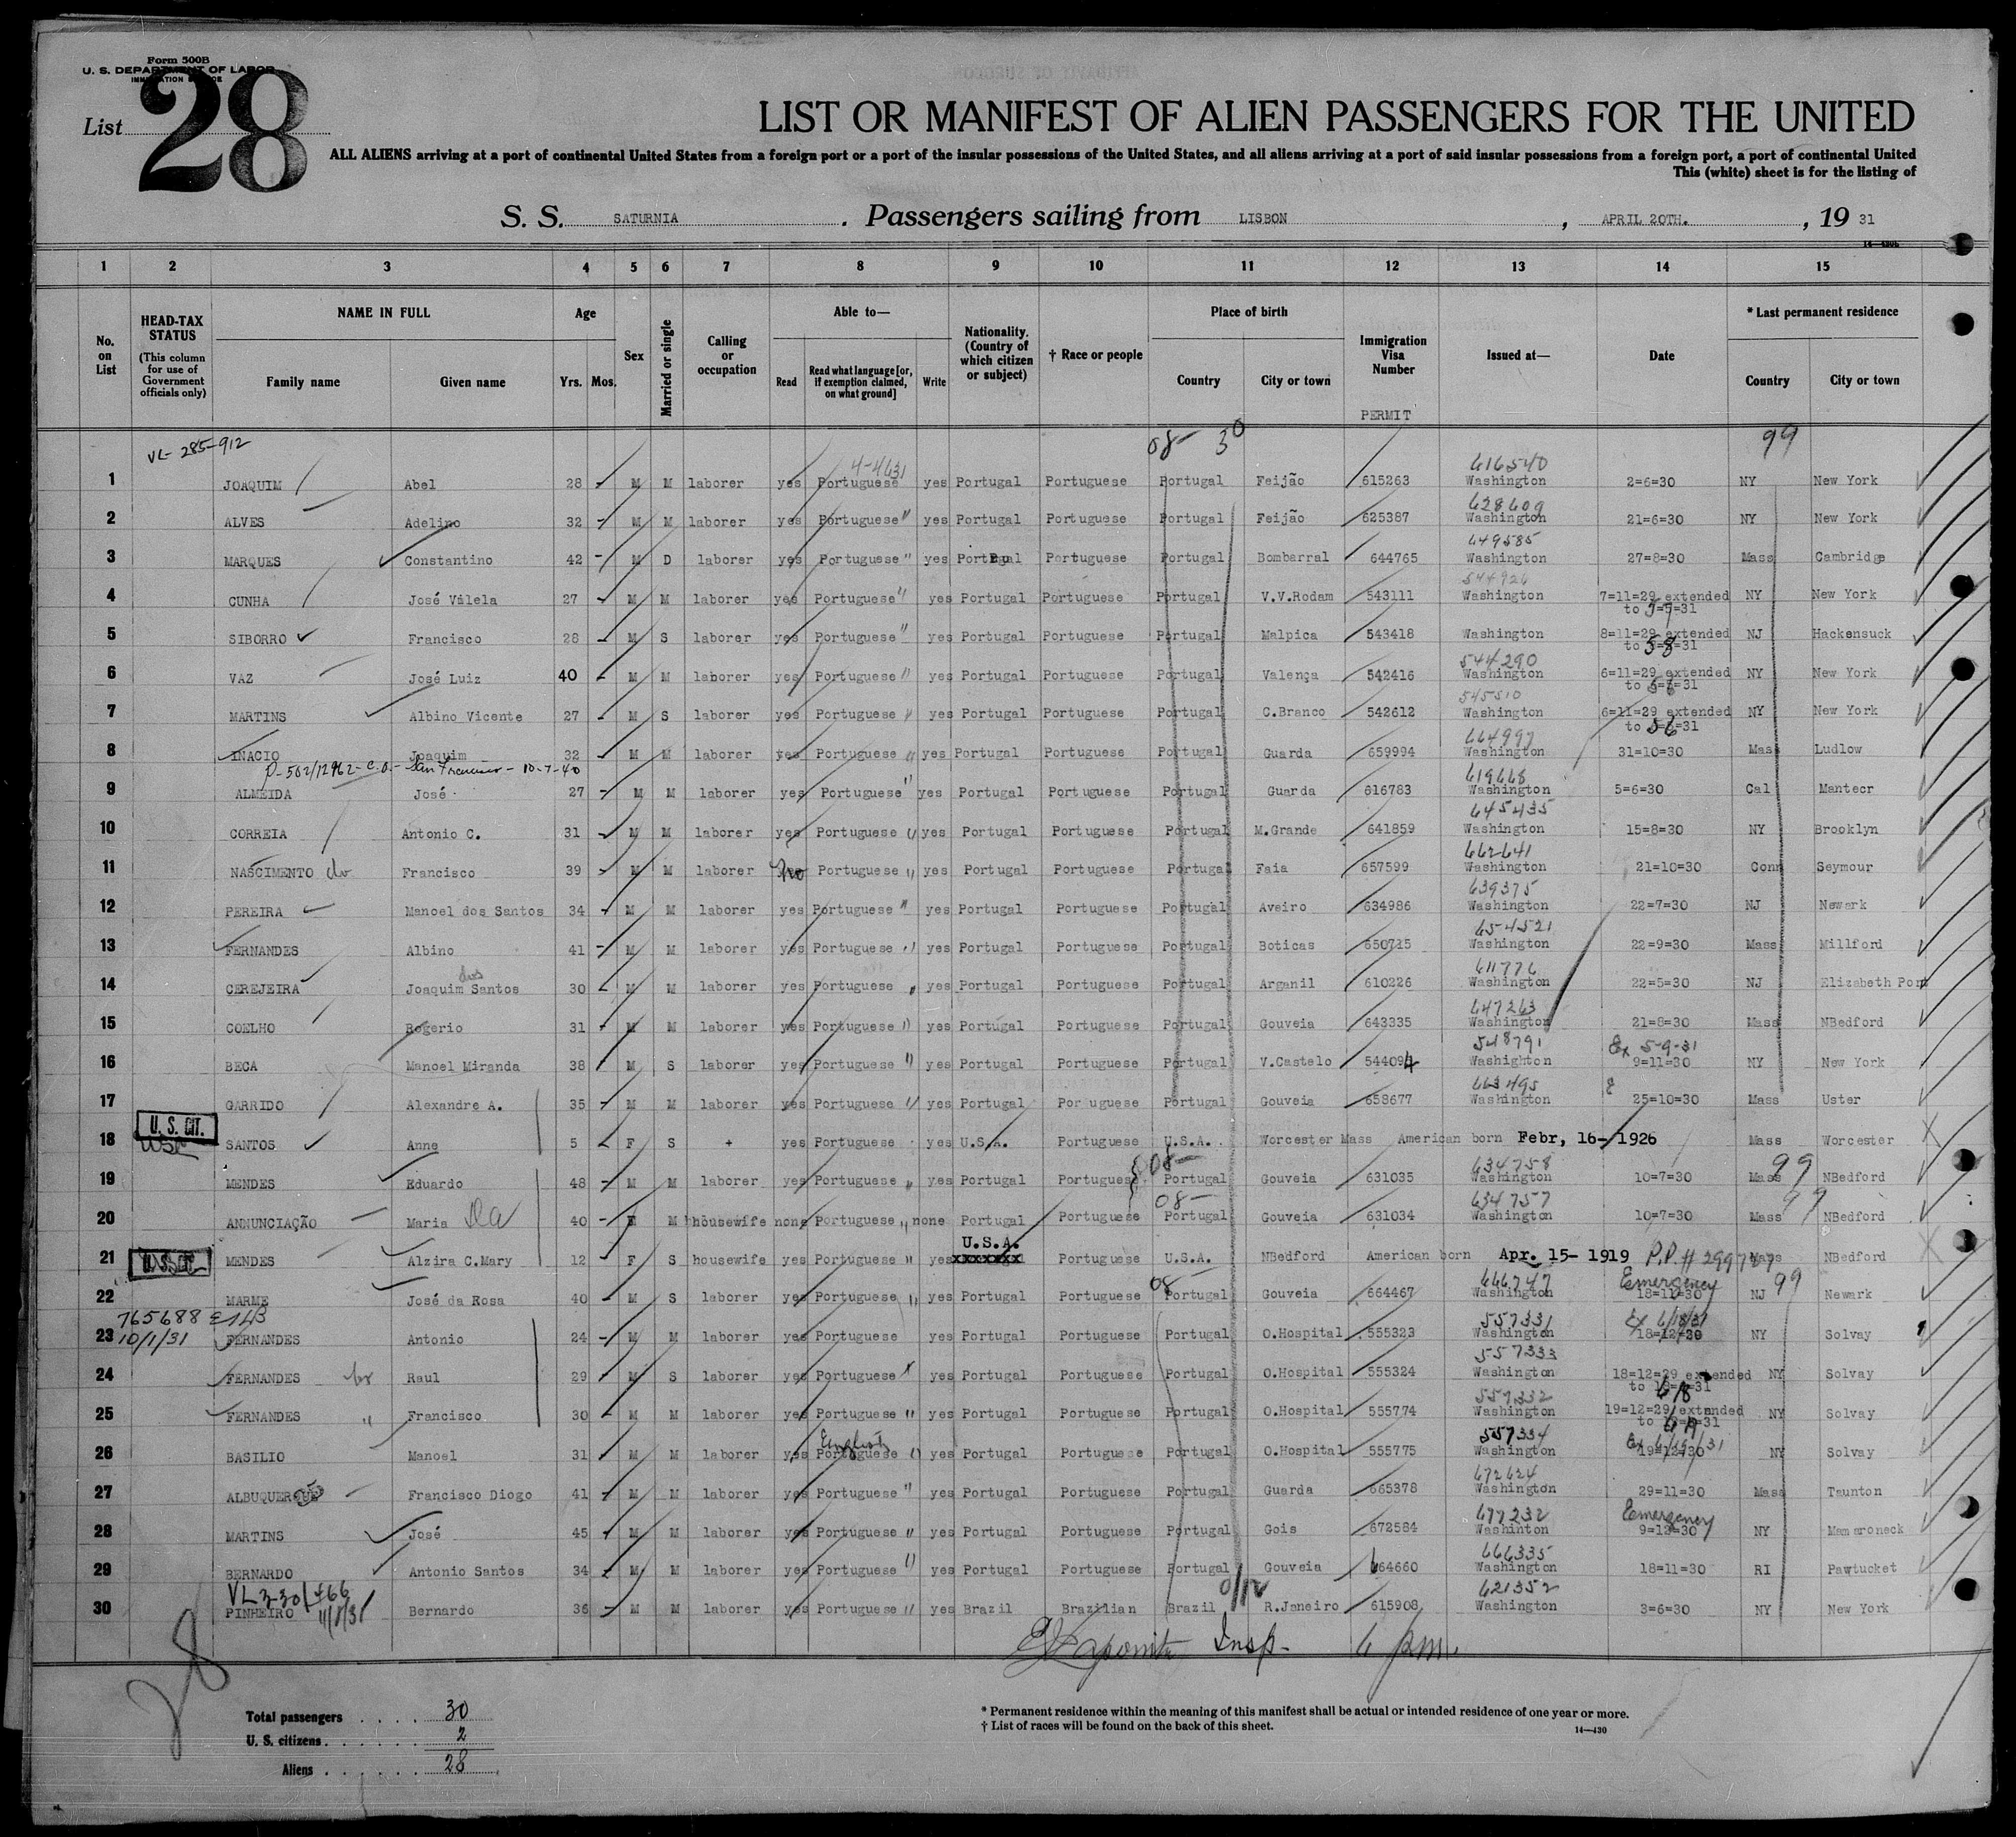 Form 500B
U. S. DEPARTMENT OF LABOR
IMMIGRATION SERVICE
List 28
LIST OR MANIFEST OF ALIEN PASSENGERS FOR THE UNITED
ALL ALIENS arriving at a port of continental United States from a foreign port or a port of the insular possessions of the United States, and all aliens arriving at a port of said insular possessions from a foreign port, a port of continental United
This (white) sheet is for the listing of
S. S. SATURNIA , Passengers sailing from LISBON , APRIL 20TH. , 19 31
1 2 3 4 5 6 7 8 9 10 11 12 13 14 15
No. on List
HEAD-TAX STATUS (This column for use of Government officials only)
NAME IN FULL Family name Given name
Age Yrs. Mos.
Sex
Married or single
Calling or occupation
Able to— Read Read what language [or, if exemption claimed, on what ground] Write
Nationality. (Country of which citizen or subject)
† Race or people
Place of birth Country City or town
Immigration Visa Number PERMIT
Issued at—
Date
* Last permanent residence Country City or town
VL- 285-912 08- 30 99
4-4631 616540
1 JOAQUIM Abel 28 M M laborer yes Portuguese yes Portugal Portuguese Portugal Feijão 615263 Washington 2=6=30 NY New York
628609
2 ALVES Adelino 32 M M laborer yes Portuguese " yes Portugal Portuguese Portugal Feijão 625387 Washington 21=6=30 NY New York
649585
3 MARQUES Constantino 42 M D laborer yes Portuguese " yes Portugal Portuguese Portugal Bombarral 644765 Washington 27=8=30 Mass Cambridge
544926
4 CUNHA José Vilela 27 M M laborer yes Portuguese " yes Portugal Portuguese Portugal V.V.Rodam 543111 Washington 7=11=29 extended NY New York
to 5=7=31
5 SIBORRO Francisco 28 M S laborer yes Portuguese " yes Portugal Portuguese Portugal Malpica 543418 Washington 8=11=29 extended NJ Hackensuck
to 5=8=31
544290
6 VAZ José Luiz 40 M M laborer yes Portuguese " yes Portugal Portuguese Portugal Valença 542416 Washington 6=11=29 extended NY New York
to 5=6=31
545510
7 MARTINS Albino Vicente 27 M S laborer yes Portuguese " yes Portugal Portuguese Portugal C.Branco 542612 Washington 6=11=29 extended NY New York
to 5=6=31
664997
8 INACIO Joaquim 32 M M laborer yes Portuguese " yes Portugal Portuguese Portugal Guarda 659994 Washington 31=10=30 Mass Ludlow
P-502/12962-C.O.- San Francisco - 10-7-40 619668
9 ALMEIDA José 27 M M laborer yes Portuguese " yes Portugal Portuguese Portugal Guarda 616783 Washington 5=6=30 Cal Mantecr
645435
10 CORREIA Antonio C. 31 M M laborer yes Portuguese " yes Portugal Portuguese Portugal M.Grande 641859 Washington 15=8=30 NY Brooklyn
662641
11 NASCIMENTO do Francisco 39 M M laborer no Portuguese " yes Portugal Portuguese Portugal Faia 657599 Washington 21=10=30 Conn Seymour
639375
12 PEREIRA Manoel dos Santos 34 M M laborer yes Portuguese " yes Portugal Portuguese Portugal Aveiro 634986 Washington 22=7=30 NJ Newark
654521
13 FERNANDES Albino 41 M M laborer yes Portuguese " yes Portugal Portuguese Portugal Boticas 650715 Washington 22=9=30 Mass Millford
dos 611776
14 CEREJEIRA Joaquim Santos 30 M M laborer yes Portuguese " yes Portugal Portuguese Portugal Arganil 610226 Washington 22=5=30 NJ Elizabeth Port
647263
15 COELHO Rogerio 31 M M laborer yes Portuguese " yes Portugal Portuguese Portugal Gouveia 643335 Washington 21=8=30 Mass NBedford
548791 Ex 5-9-31
16 BECA Manoel Miranda 38 M S laborer yes Portuguese " yes Portugal Portuguese Portugal V.Castelo 544094 Washighton 9=11=30 NY New York
663495
17 GARRIDO Alexandre A. 35 M M laborer yes Portuguese " yes Portugal Por uguese Portugal Gouveia 658677 Washington 25=10=30 Mass Uster
U. S. CIT.
18 USC SANTOS Anne 5 F S + yes Portuguese yes U.S.A. Portuguese U.S.A. Worcester Mass American born Febr, 16- 1926 Mass Worcester
08- 634758 99
19 MENDES Eduardo 48 M M laborer yes Portuguese " yes Portugal Portuguese Portugal Gouveia 631035 Washington 10=7=30 Mass NBedford
08- 634757 99
20 ANNUNCIAÇÃO Maria Da 40 F M housewife none Portuguese " none Portugal Portuguese Portugal Gouveia 631034 Washington 10=7=30 Mass NBedford
U.S.A.
21 U.S.CIT. MENDES Alzira C.Mary 12 F S housewife yes Portuguese " yes xxxxxxxx Portuguese U.S.A. NBedford American born Apr. 15- 1919 P.P.# Mass NBedford
08- 666747 Emergency 99
22 MARME José da Rosa 40 M S laborer yes Portuguese " yes Portugal Portuguese Portugal Gouveia 664467 Washington 18=11=30 NJ Newark
765688 557331 Ex 6/18/31
23 10/1/31 FERNANDES Antonio 24 M M laborer yes Portuguese yes Portugal Portuguese Portugal O.Hospital 555323 Washington 18=12=30 NY Solvay
557333
24 FERNANDES Raul 29 M S laborer yes Portuguese yes Portugal Portuguese Portugal O.Hospital 555324 Washington 18=12=29 extended NY Solvay
to 6/8=31
557332
25 FERNANDES " Francisco 30 M M laborer yes Portuguese " yes Portugal Portuguese Portugal O.Hospital 555774 Washington 19=12=29 extended NY Solvay
to 6/19=31
English 557334 Ex 6/19/31
26 BASILIO Manoel 31 M M laborer yes Portuguese " yes Portugal Portuguese Portugal O.Hospital 555775 Washington 19=12=30 NY Solvay
672624
27 ALBUQUERQUE Francisco Diogo 41 M M laborer yes Portuguese " yes Portugal Portuguese Portugal Guarda 665378 Washington 29=11=30 Mass Taunton
677232 Emergency
28 MARTINS José 45 M M laborer yes Portuguese " yes Portugal Portuguese Portugal Gois 672584 Washinton 9=12=30 NY Mamaroneck
666335
29 BERNARDO Antonio Santos 34 M M laborer yes Portuguese " yes Portugal Portuguese Portugal Gouveia 664660 Washington 18=11=30 RI Pawtucket
621352
30 PINHEIRO Bernardo 36 M M laborer yes Portuguese " yes Brazil Brazilian Brazil R.Janeiro 615908 Washington 3=6=30 NY New York
Insp- 6 p.m.
28
Total passengers . . . . 30
U. S. citizens . . . . . . 2
Aliens . . . . . . 28
* Permanent residence within the meaning of this manifest shall be actual or intended residence of one year or more.
† List of races will be found on the back of this sheet. 14—430